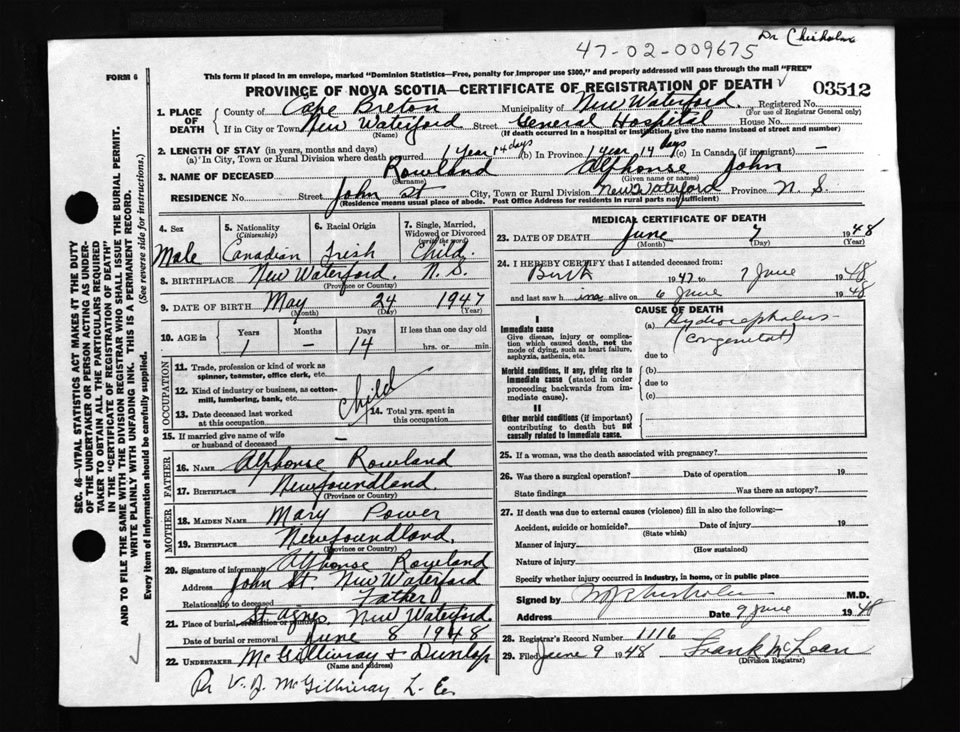 Dr Chisholm
47-02-009675
FORM 6
This form if placed in an envelope, marked "Dominion Statistics—Free, penalty for improper use $300," and properly addressed will pass through the mail "FREE"
PROVINCE OF NOVA SCOTIA—CERTIFICATE OF REGISTRATION OF DEATH
03512
1. PLACE OF DEATH
County of Cape Breton Municipality of New Waterford. Registered No.
(For use of Registrar General only)
If in City or Town New Waterford Street General Hospital House No.
(Name) (If death occurred in a hospital or institution, give the name instead of street and number)
2. LENGTH OF STAY (in years, months and days)
(a) In City, Town or Rural Division where death occurred 1 Year 14 days (b) In Province 1 year 14 days (c) In Canada (if immigrant) —
3. NAME OF DECEASED Rowland Alphonse John
(Surname) (Given name or names)
RESIDENCE No. Street John St City, Town or Rural Division New Waterford Province N. S.
(Residence means usual place of abode. Post Office Address for residents in rural parts not sufficient)
4. Sex Male
5. Nationality (Citizenship) Canadian
6. Racial Origin Irish
7. Single, Married, Widowed or Divorced (write the word) Child
8. BIRTHPLACE New Waterford. N. S.
(Province or Country)
9. DATE OF BIRTH May 24 1947
(Month) (Day) (Year)
10. AGE in Years Months Days If less than one day old
1 — 14 hrs. or min.
OCCUPATION
11. Trade, profession or kind of work as spinner, teamster, office clerk, etc.
12. Kind of industry or business, as cotton-mill, lumbering, bank, etc.
Child
13. Date deceased last worked at this occupation
14. Total yrs. spent in this occupation
15. If married give name of wife or husband of deceased —
FATHER
16. NAME Alphonse Rowland
17. BIRTHPLACE Newfoundland.
(Province or Country)
MOTHER
18. MAIDEN NAME Mary Power
19. BIRTHPLACE Newfoundland.
(Province or Country)
20. Signature of informant Alphonse Rowland
Address John St. New Waterford
Relationship to deceased Father
21. Place of burial, New Waterford.
Date of burial or removal June 8 1948
22. UNDERTAKER McGillivray & Dunlap
(Name and address)
Pr V. J. McGillivray L. E.
MEDICAL CERTIFICATE OF DEATH
23. DATE OF DEATH June 7 1948
(Month) (Day) (Year)
24. I HEREBY CERTIFY that I attended deceased from:
Birth 1947 to 7 June 1948
and last saw him alive on 6 June 1948
CAUSE OF DEATH
I
Immediate cause
Give disease, injury or complication which caused death, not the mode of dying, such as heart failure, asphyxia, asthenia, etc.
(a) Hydrocephalus
(Congenital)
due to
Morbid conditions, if any, giving rise to immediate cause (stated in order proceeding backwards from immediate cause).
(b)
due to
(c)
II
Other morbid conditions (if important) contributing to death but not causally related to immediate cause.
25. If a woman, was the death associated with pregnancy?
26. Was there a surgical operation? Date of operation 19
State findings Was there an autopsy?
27. If death was due to external causes (violence) fill in also the following:—
Accident, suicide or homicide? Date of injury 19
(State which)
Manner of injury
(How sustained)
Nature of injury
Specify whether injury occurred in industry, in home, or in public place
Signed by Chisholm M.D.
Address Date 9 June 1948
28. Registrar's Record Number 1116
29. Filed June 9 1948 Frank McLean
(Division Registrar)
SEC. 46—VITAL STATISTICS ACT MAKES IT THE DUTY
OF THE UNDERTAKER OR PERSON ACTING AS UNDER-
TAKER TO OBTAIN ALL THE PARTICULARS REQUIRED
IN THE "CERTIFICATE OF REGISTRATION OF DEATH"
AND TO FILE THE SAME WITH THE DIVISION REGISTRAR WHO SHALL ISSUE THE BURIAL PERMIT.
WRITE PLAINLY WITH UNFADING INK. THIS IS A PERMANENT RECORD.
Every item of information should be carefully supplied. (See reverse side for instructions.)